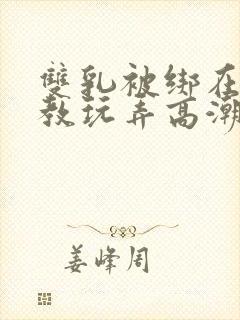 雙乳被綁在
教玩弄高潮
姜峰周